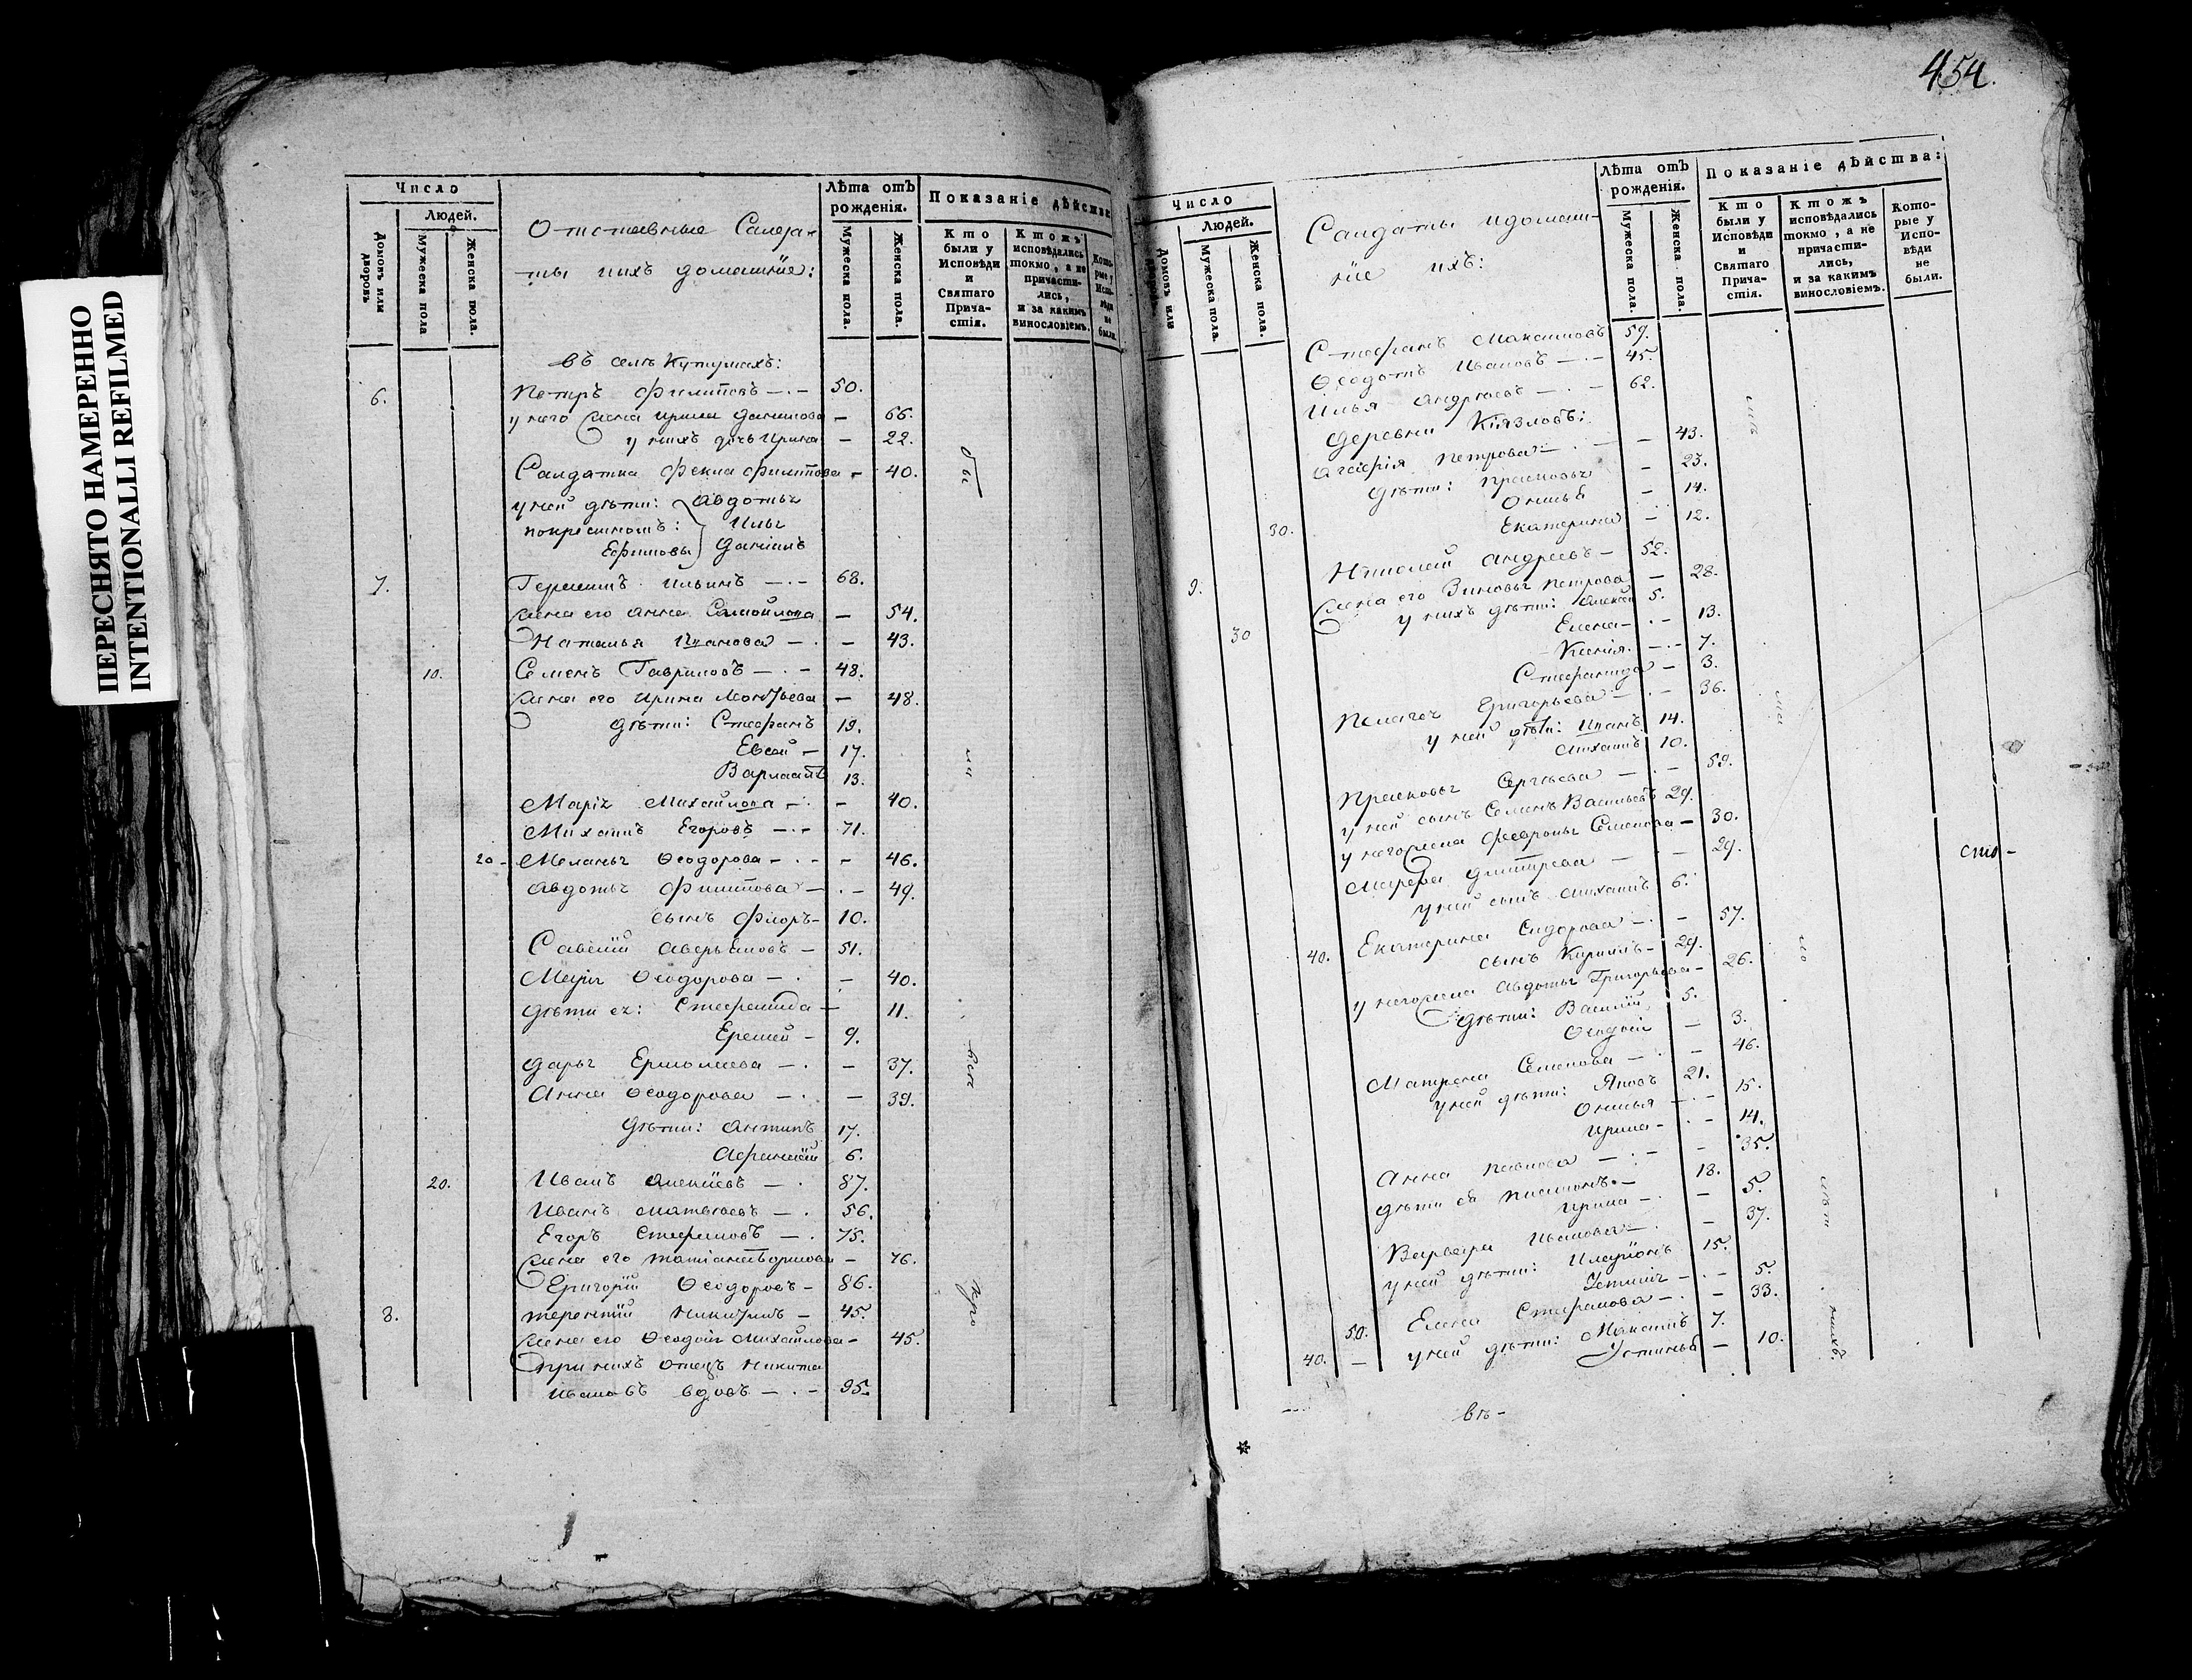 454.
ПЕРЕСНЯТО НАМЕРЕННО
INTENTIONALLI REFILMED
Число
Людей.
Домовъ или дворовъ
Мужеска пола
Женска пола.
Отставные Салда-
ты ихъ домашнїе:
Лѣта отъ рожденїя.
Мужеска пола.
Женска пола.
Показанїе дѣйства
Кто были у Исповѣди и Святаго Прича-стїя.
Ктожъ исповѣдались токмо, а не причасти-лись, и за какимъ винословїемъ.
Кото-рые у Испо-вѣди не были.
въ селѣ Кутушахъ:
6. Петръ Филиповъ — 50.
у него жена Ирина Данилова — 66.
у нихъ дочь Ирина — 22.
Салдатка Фекла Филипова — 40.
у ней дѣти: Авдотья
Илья
Ефимовы Данїилъ
7. Герасимъ Ильинъ — 68.
жена его Анна Самойлова — 54.
Наталья Иванова — 43.
10. Семенъ Гавриловъ — 48.
жена его Ирина — 48.
дѣти: Стефанъ 19.
Евсей — 17.
Варлаамъ 13.
Марїя Михайлова — 40.
Михаилъ Егоровъ — 71.
20 - Меланья Ѳеодорова — 46.
Авдотья Филипова — 49.
сынъ Флоръ — 10.
Савелїй Аверьяновъ — 51.
Марїя Ѳеодорова — 40.
дѣти ея: Стефанида — 11.
Еремей — 9.
Дарья Ермолаева — 37.
Анна Ѳеодорова — 39.
дѣти: Антипъ 17.
Афанасїй 6.
20. Иванъ Алексѣевъ — 87.
Иванъ Матвѣевъ — 56.
Егоръ Стефановъ — 75.
жена его — 76.
Григорїй Ѳеодоровъ — 86.
8. Терентїй Никитинъ — 45.
жена его Ѳеодосїя Михайлова — 45.
при нихъ отецъ Никита
Ивановъ вдовъ — 95.
Число
Людей.
Домовъ или
Мужеска пола.
Женска пола.
Салдаты и домаш-
нїе ихъ:
Лѣта отъ рожденїя.
Мужеска пола.
Женска пола.
Показанїе дѣйства:
Кто были у Исповѣди и Святаго Прича-стїя.
Ктожъ исповѣдались токмо, а не причасти-лись, и за какимъ винословїемъ.
Кото-рые у Испо-вѣди не были.
Стефанъ Максимовъ 59.
Ѳеодотъ Ивановъ — 45.
Илья Андреевъ — 62.
Деревни
Петрова — 43.
дѣти: Прасковья — 23.
Онисья — 14.
30. Екатерина — 12.
9. Николай Андреевъ — 52.
жена его Зиновья Петрова — 28.
30 у нихъ дѣти: Алексѣй 5.
Елена — 13.
Ксенїя — 7.
Стефанида — 3.
Пелагея Григорьева — 36.
у ней дѣти: Иванъ 14.
Михаилъ 10.
Прасковья Сергѣева — 59.
у ней сынъ Семенъ Васильевъ 29.
у него жена Феврѡнья Семенова — 30.
Марфа Дмитрева — 29.
у ней сынъ Михаилъ 6.
40. Екатерина Сидорова — 57.
сынъ Кирилъ — 29.
у него жена Авдотья Григорьева — 26.
дѣти: Василїй 5.
Ѳеодосїя — 3.
Матрена Семенова — 46.
у ней дѣти: Яковъ 21.
Онисья — 15.
Ирина — 14.
Анна Павлова — 35.
дѣти ея 18.
Ирина — 5.
Варвара Иванова — 37.
у ней дѣти: Иларїонъ 15.
5.
50. Елена Стефанова — 33.
40. — у ней дѣти: Максимъ 7.
Устинья — 10.
въ-